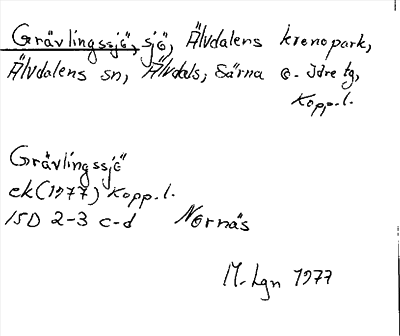 Grävlingssjö, sjö, Älvdalens krenopark,
Älvdalens sn, Älvdals, Särna o. Idre tg,
Kopp.l.
Grävlingssjö
ek (1977) Kopp.l.
15D 2-3 c-d Nornäs
M. Lgn 1977